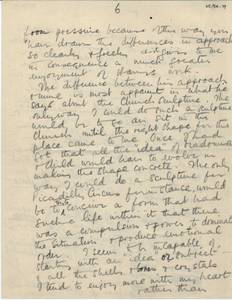 6
from pressure because this way you
have drawn the differences in approach
so clearly & freely & gives to me
in consequence a much greater
enjoyment of Henry's work.
The difference between his approach
& mine is most apparent in what he
says about the Church sculpture. The
only way I could do such a sculpture
would be to go & sit in this
Church until the right shape for this
place came to me. Once I had
got that all this 'idea' of Madonna
& Child would have to evolve in
making the shape concrete. The only
way I could do a sculpture for
Piccadilly Circus for instance, would
be to conceive a form that had
such a life within it that there
was a compulsion & power to dominate
the situation & produce emotional
order. I seem to be incapable of
starting with an idea or subject
all the shells & bones & crystals
I tend to enjoy more with my heart
rather than